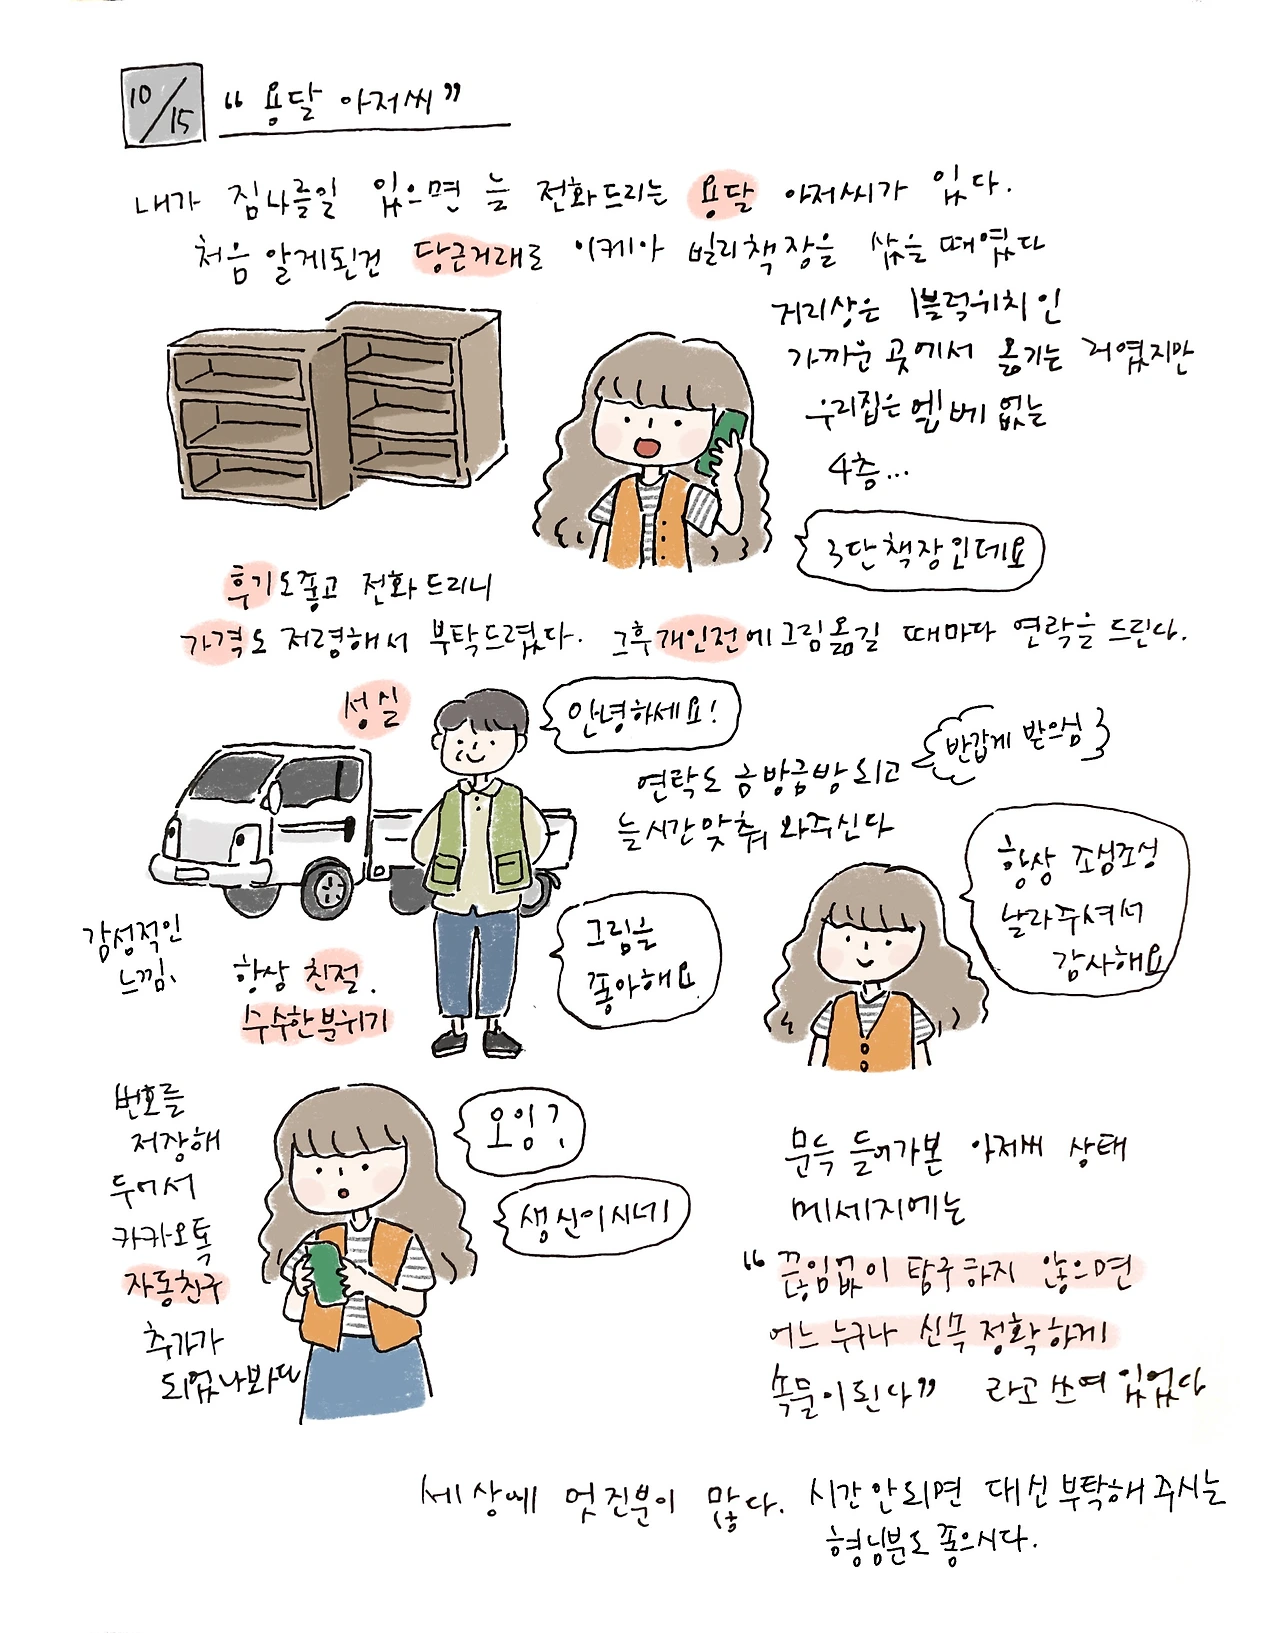 10/15
“용달 아저씨”
내가 짐나를일 있으면 늘 전화드리는 용달 아저씨가 있다.
처음 알게된건 당근거래로 이케아 빌리책장을 샀을때였다
거리상은 1블럭위치인
가까운 곳에서 옮기는 거였지만
우리집은 엘베 없는
4층...
3단책장인데요
후기도좋고 전화드리니
가격도 저렴해서 부탁드렸다. 그후개인전에그림옮길 때마다 연락을드린다.
성실
안녕하세요!
연락도 금방금방되고
반갑게 받으심
늘시간맞춰 와주신다
항상 조심조심
날라주셔서
감사해요
그림을
좋아해요
감성적인
느낌.
항상 친절.
수수한분위기
번호를
저장해
두어서
카카오톡
자동친구
추가가
되었나봐다
오잉?
생신이시네
문득 들어가본 아저씨 상태
메세지에는
“끊임없이 탐구하지 않으면
어느누구나 신속정확하게
속물이된다” 라고쓰여있었다
세상에 멋진분이 많다. 시간안되면 대신부탁해주시는
형님분도좋으시다.